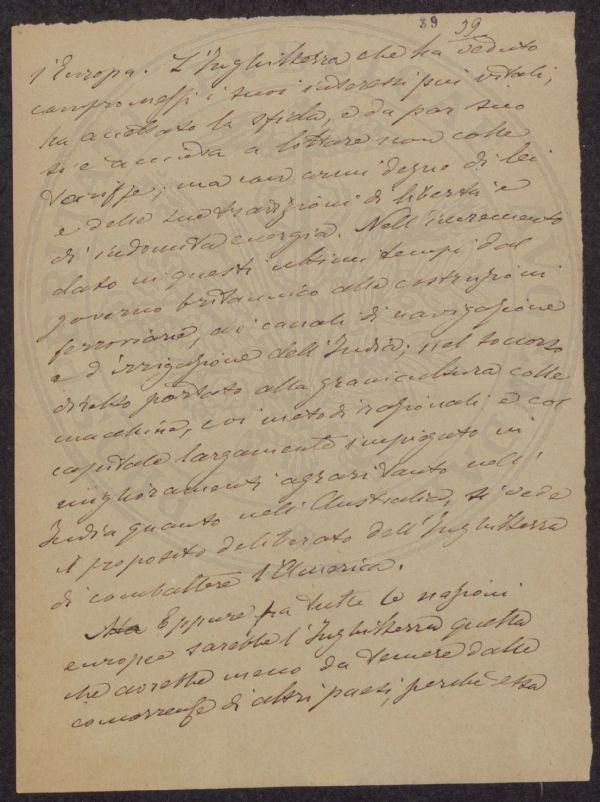 39 39
l'Europa. L'Inghilterra che ha veduto
compromessi i suoi interessi più vitali,
ha accettato la sfida, e da par suo
si è accinta a lottare non colle
tariffe, ma con armi degne di lei
e delle sue tradizioni di libertà e
di indomita energia. Nell'incremento
dato in questi ultimi tempi dal
governo britannico alle costruzioni
ferroviarie, ai canali di navigazione
e d'irrigazione dell'India; nel soccorso
diretto portato alla granicultura colle
macchine, coi metodi razionali e col
capitale largamente impiegato in
miglioramenti agrari tanto nell'
India quanto nell'Australia, si vede
il proposito deliberato dell'Inghilterra
di combattere l'America.
Ma Eppure fra tutte le nazioni
europee sarebbe l'Inghilterra quella
che avrebbe meno da temere dalle
concorrenze di altri paesi, perché essa